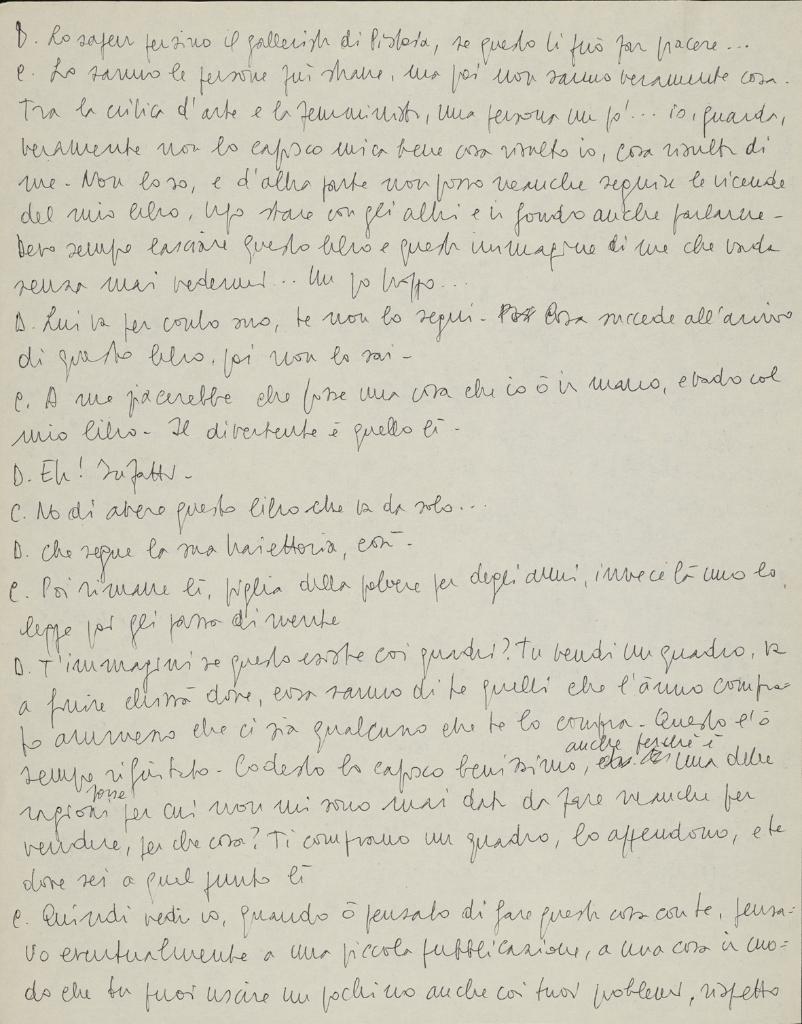 D. Lo saperi persino il gallerista di Pistoia, se questo ti può far piacere...
C. Lo sanno le persone più strane, ma poi non sanno veramente cosa.
Tra la critica d'arte e la femminista, una persona un po'... io, guarda,
veramente non lo capisco mica bene cosa risulto io, cosa risulta di
me - Non lo so, e d'altra parte non posso neanche seguire le vicende
del mio libro, stare con gli altri e in fondo anche parlarne -
Devo sempre lasciare questo libro e questa immagine di me che vada
senza mai vedermi... Un po troppo...
D. Lui va per conto suo, te non lo segui - Cosa succede all'arrivo
di questo libro, poi non lo sai -
C. A me piacerebbe che fosse una cosa che io ò in mano, e vado col
mio libro - Il divertente è quello lì -
D. Eh! Infatti -
C. No di avere questo libro che va da solo...
D. Che segue la sua traiettoria, così -
C. Poi rimane lì, piglia della polvere per degli anni, invece là uno lo
legge poi gli passa di mente
D. T'immagini se questo esiste coi quadri? Tu vendi un quadro, va
a finire chissà dove, cosa sanno di te quelli che l'ànno compra-
to ammesso che ci sia qualcuno che te lo compra - Questo l'ò
sempre rifiutato - Codesto lo capisco benissimo, anche perché è una delle
ragioni forse per cui non mi sono mai data da fare neanche per
vendere, per che cosa? Ti comprano un quadro, lo appendono, e te
dove sei a quel punto lì
C. Quindi vedi io, quando ò pensato di fare questa cosa con te, pensa=
vo eventualmente a una piccola pubblicazione, a una cosa in mo=
do che tu puoi uscire un pochino anche coi tuoi problemi, rispetto